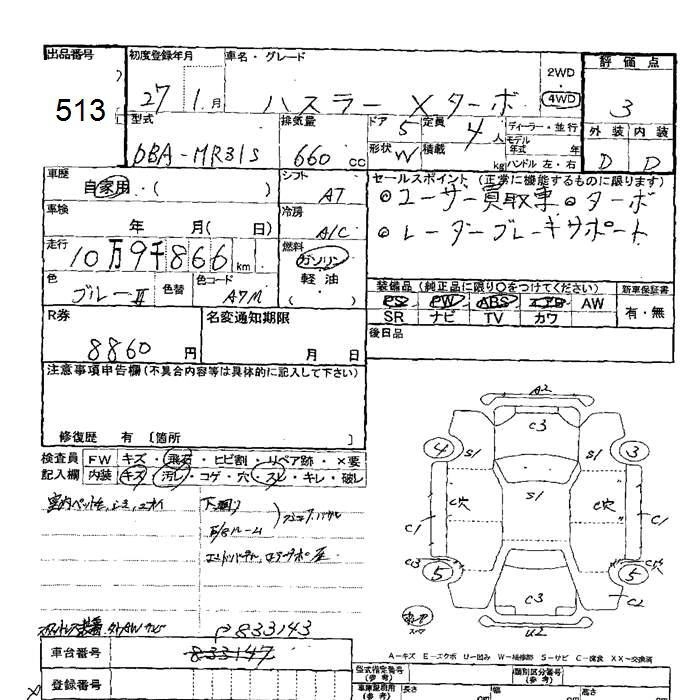 出品番号 初度登録年月 車名・グレード 2WD 評価点
513 27 1月 ハスラー Xターボ 4WD 3
型式 排気量 ドア 5 定員 4人 ディーラー・並行 外装 内装
DBA-MR31S 660cc 形状 W 積載 kg モデル年式 年 ハンドル 左・右 D D
車歴 シフト セールスポイント(正常に機能するものに限ります)
自家用・( ) AT ◎ユーザー買取車◎ターボ
車検 冷房 ◎レーダーブレーキサポート
年 月( 日) A/C
走行 燃料
10万9千866km ガソリン
色 色替 色コード 軽油
ブルーⅡ A7M ( )
装備品(純正品に限り○をつけてください) 新車保証書
PS PW ABS エアB AW 有・無
SR ナビ TV カワ
R券 名変通知期限 後日品
8860円 月 日
注意事項申告欄(不具合内容等は具体的に記入して下さい)
修復歴 有 〔箇所 〕
検査員 FW キズ・飛石・ヒビ割・リペア跡・×要
記入欄 内装 キズ・汚レ・コゲ・穴・スレ・キレ・破レ
下廻り
A2
C3
4 S1 S1 3
S1
C穴 C穴
C1 C1
C3 5 5 C穴
C3 C2
U2
833143
車台番号 833147
登録番号
A-キズ E-エクボ U-凹み W-補修跡 S-サビ C-腐食 XX-交換済
型式指定番号(参考) 類別区分番号(参考)
車庫証明用(参考) 長さ cm 幅 cm 高さ cm